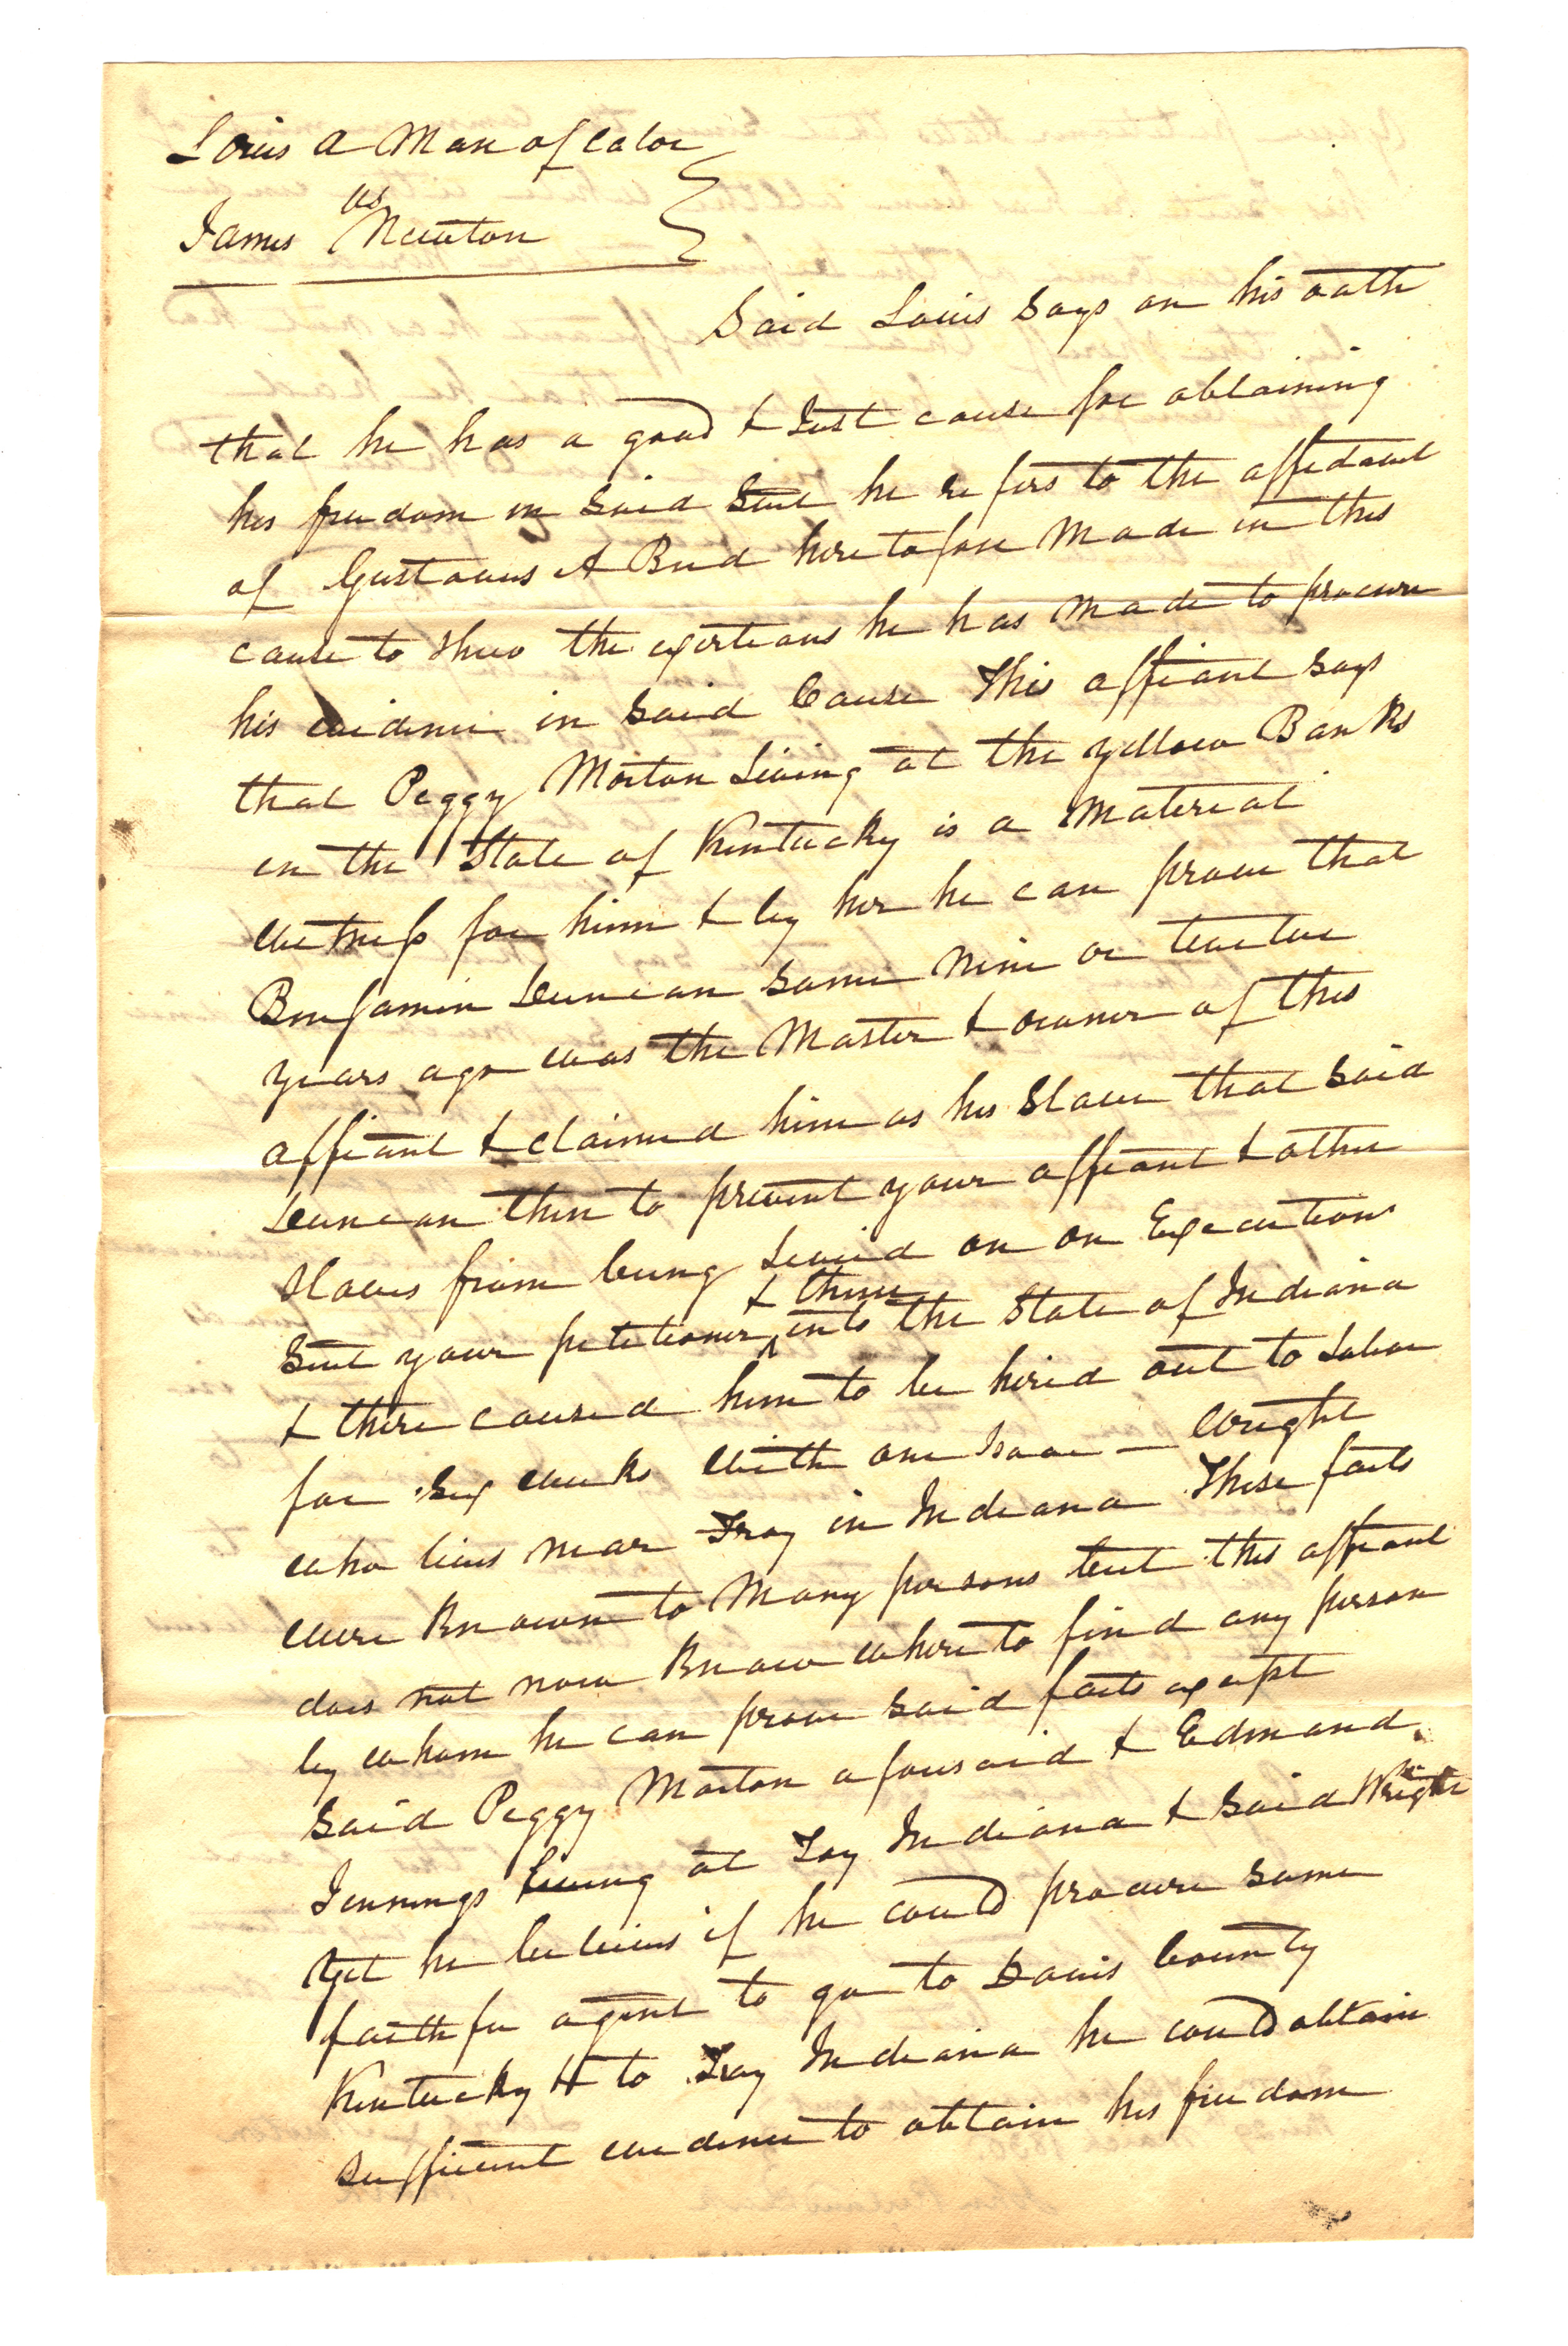 Louis a Man of Color
vs
James Newton
Said Louis Says on his oath
that he has a good & Just cause for obtaining
his freedom in Said Suit he refers to the affidavit
of Gustavus A Bird heretofore Made in this
cause to shew the exertions he has made to procure
his evidence in Said Cause This affiant says
that Peggy Morton Living at the yellow Banks
in the State of Kentucky is a Material
witness for him & by her he can prove that
Benjamin Duncan Some Nine or twelve
years ago was the Master & owner of this
affiant & claimed him as his Slave that Said
Duncan then to prevent your affiant & other
slaves from being Levied on on Execution
Sent your petitioner & them into the State of Indiana
& there caused him to be hired out to Labor
for Six weeks with one Isaac — Wright
who lives near Troy in Indiana These facts
were Known to Many persons but this affiant
does not now Know where to find any person
by whom he can prove said facts except
Said Peggy Morton aforesaid & Edmond
Jennings living at Troy Indiana & Said Wright
Yet he believes if he could procure some
faithful agent to go to Davis County
Kentucky & to Troy Indiana he could obtain
sufficient evidence to obtain his freedom